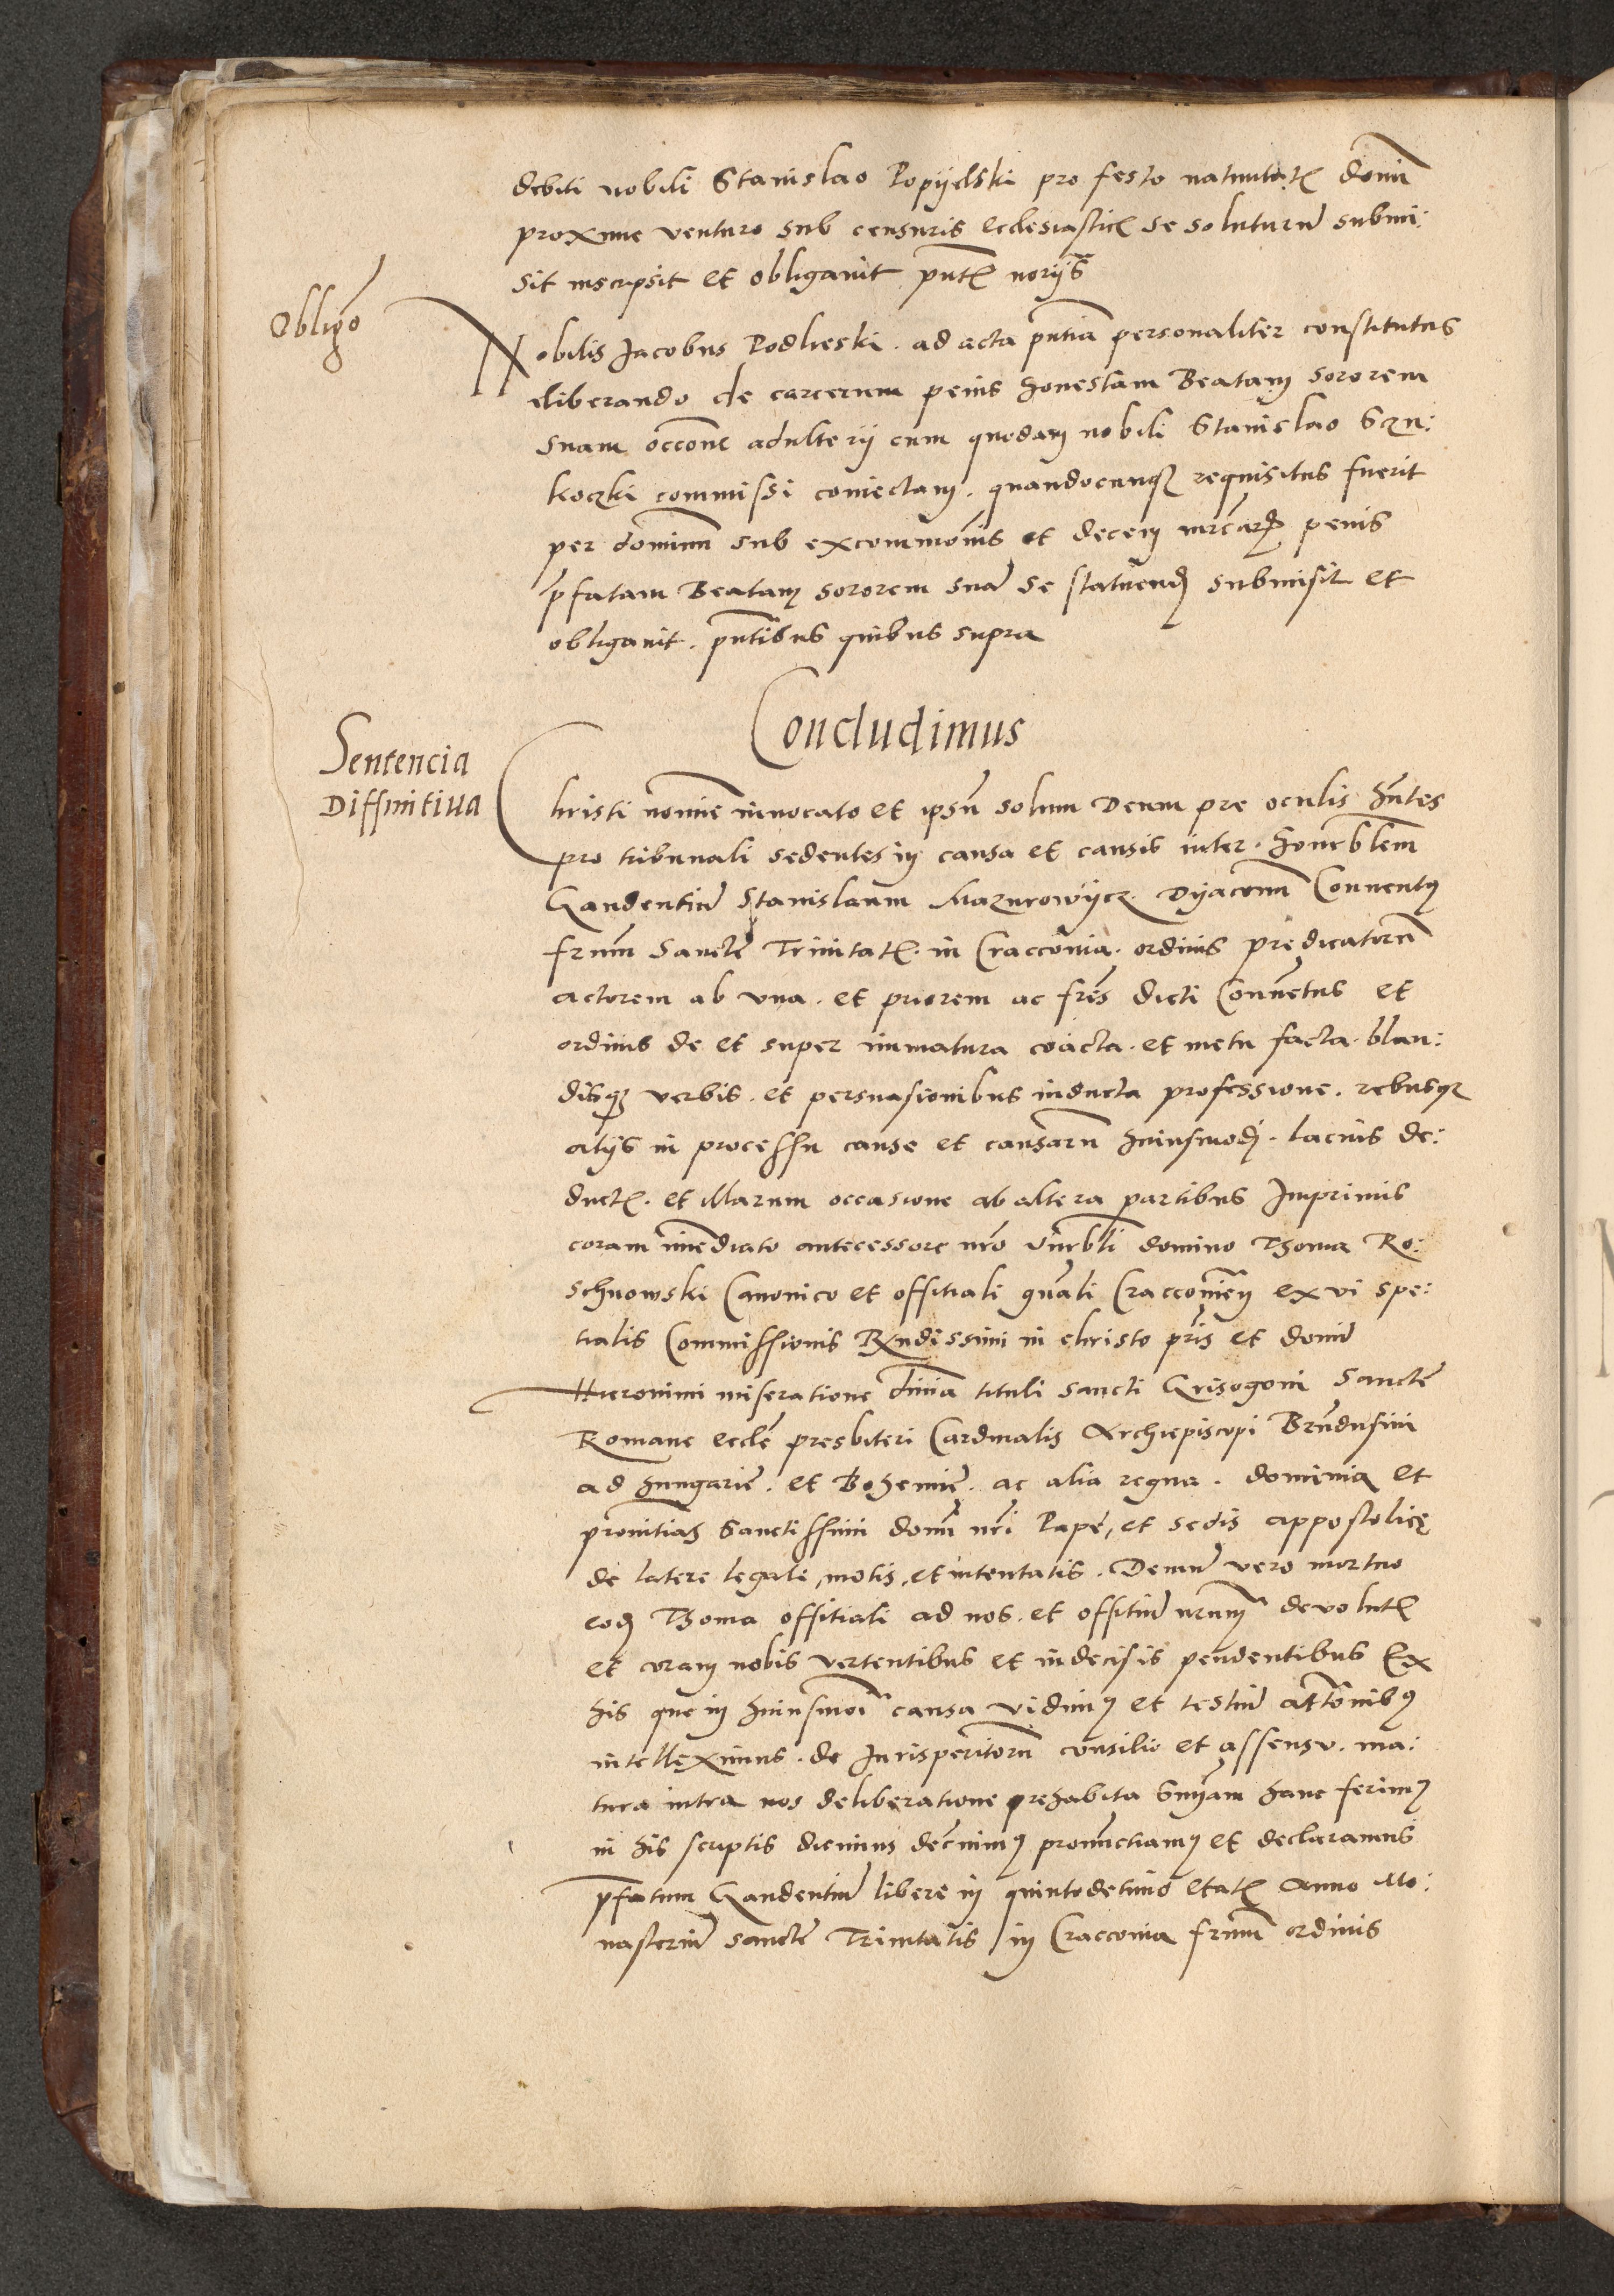 debiti nobili Stanislao Popijelski pro festo natiuitatꝭ domi
proxime venturo sub censuris ecclesiasticꝭ se soluturū submi:
sit inscripsit et obligauit pntꝭ norijs
Obligō
Nobilis Jacobus Podlieski. ad acta pntia personaliter constitutus
eliberando de carcerum penis honestam Beatam sororem
suam occone adulterij cum quodam nobili Stanislao
koczki commissi coniectam. quandocunqꝫ requisitus fuerit
per dominum sub excommonis et decem mrcarꝝ penis
pfatam Beatam sororem suā se statuend submisit et
obligauit. pntibus quibus supra
Concludimus
Sentencia
Diffinitiua
Christi nomine inuocato et ipsū solum Deum pre oculis hntes
pro tribunali sedentes in causa et causis inter. honrblem
Gaudentiū Stanislaum Mazurowijcz. Dyaconū Conuentus
frum Sancte Trinitatꝭ. in Cracconia. ordinis predicatorū
actorem ab vna. et priorem ac fres dicti Conuetus et
ordinis de et super immatura coacta. et metu facta. blan:
disqꝫ verbis. et persuasionibus inducta professione. rebusqꝫ
alijs in processu cause et causarū huiusmodi. lacius de:
ductꝭ. et illarum occasione ab altera partibus Imprimis
coram imediato antecessore nro vnrbli domino Thoma Ro:
schnowski Canonico et offitiali gnali Cracconien ex vi spe:
tialis Commissionis Rndissimi in christo pris et domi
Hieronimi miseratione diuia tituli sancti Grisogoni Sancte
Romane ecclē presbiteri Cardinalis Archiepiscopi Brundusini
ad hungarie. et Bohemie. ac alia regna. dominia et
prouitias Sanctissimi domi nri Pape, et sedis appostolicę
de latere legati, motis, et intentatis. Demū vero mortuo
eod Thoma offitiali ad nos. et offitiū nrum deuolutꝭ
et coram nobis vertentibus et indecisis pendentibus Ex
his que in huiusmoi causa vidimꝰ et testiū attonibꝰ
intelleximus. de Jurisperitorū consilio et assensu. ma:
tura intra nos deliberatione prehabita Snyam hanc ferimꝰ
in his scriptis dicimus decnimꝰ pronuctiamꝰ et declaramus
pfatum Gaudentiū libere in quintodetimo etatꝭ anno Mo:
nasteriū sancte Trinitatis in Cracconia frum ordinis